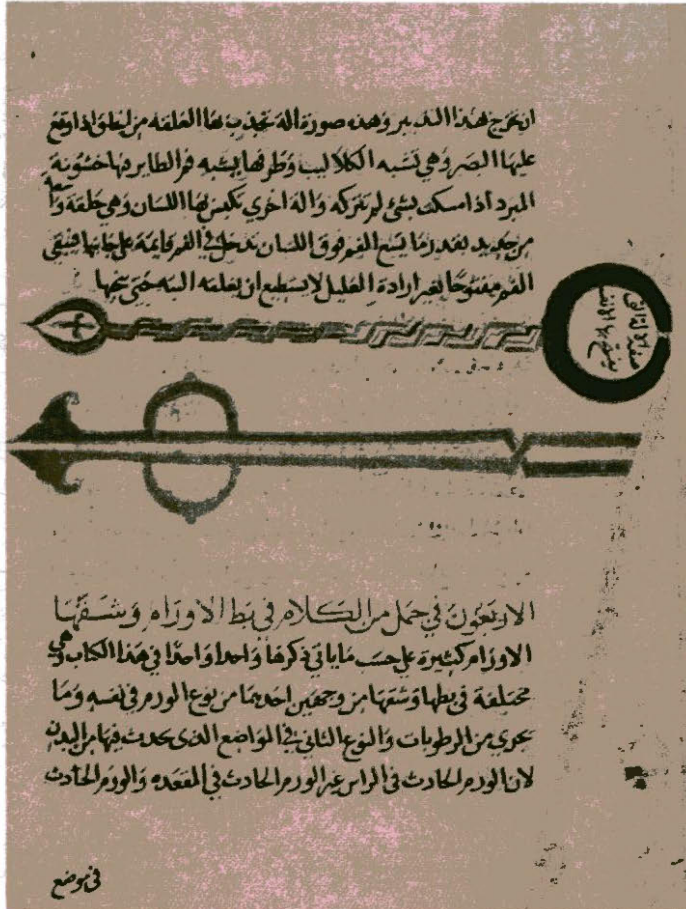 ان تخرج بهذا التدبير وهذه صورة اله تجذب بها العلقه من الحلق اذا وقع
عليها البصر وهي تشبه الكلاليب وطرفها يشبه فم الطاير فيها خشونة
المبرد اذا امسكت بشئ لم تتركه واله اخري تكبس بها اللسان وهي حلقة
من حديد بقدر ما يسع الفم فوق اللسان تدخل في الفم قايمة على جانبها فيبقى
الفم مفتوحا بغير ارادة العليل لا يستطيع ان يغلقه البته حتى
صفة الالة التى
الاربعون في جمل من الكلام في بط الاورام وشقها
الاورام كثيرة على حسب ما ياتي ذكرها واحدا واحدا في هذا الكتاب وهي
مختلفة في بطها وشقها من وجهين احدهما من نوع الورم في نفسه وما
يحوي من الرطوبات والنوع الثاني في المواضع الذى يحدث فيها من البدن
لان الورم الحادث في الراس غير الورم الحادث في المقعده والورم الحادث
في موضع